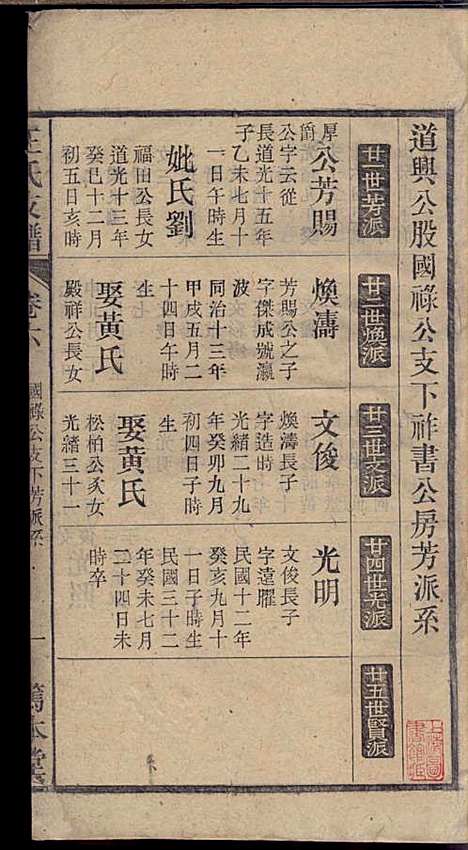 道興公股國祿公支下祚書公房芳派系
廿一世芳派
廿二世煥派
廿三世文派
廿四世光派
廿五世賢派
公芳賜
爵
公字云從
長道光十五年
子乙未七月十
一日午時生
妣氏劉
福田公長女
道光十三年
癸巳十二月
初五日亥時
煥濤
芳賜公之子
字傑成號瀛
波
同治十三年
甲戌五月二
十四日午時
生
娶黃氏
殿祥公長女
文俊
煥濤長子
字造時
光緒二十九
年癸卯九月
初四日子時
生
娶黃氏
松柏公次女
光緒三十一
光明
文俊長子
字遠耀
民國十二年
癸亥九月十
一日子時生
民國三十二
年癸未七月
二十四日未
時卒
氏支譜
卷六
國祿公支下芳派系
一